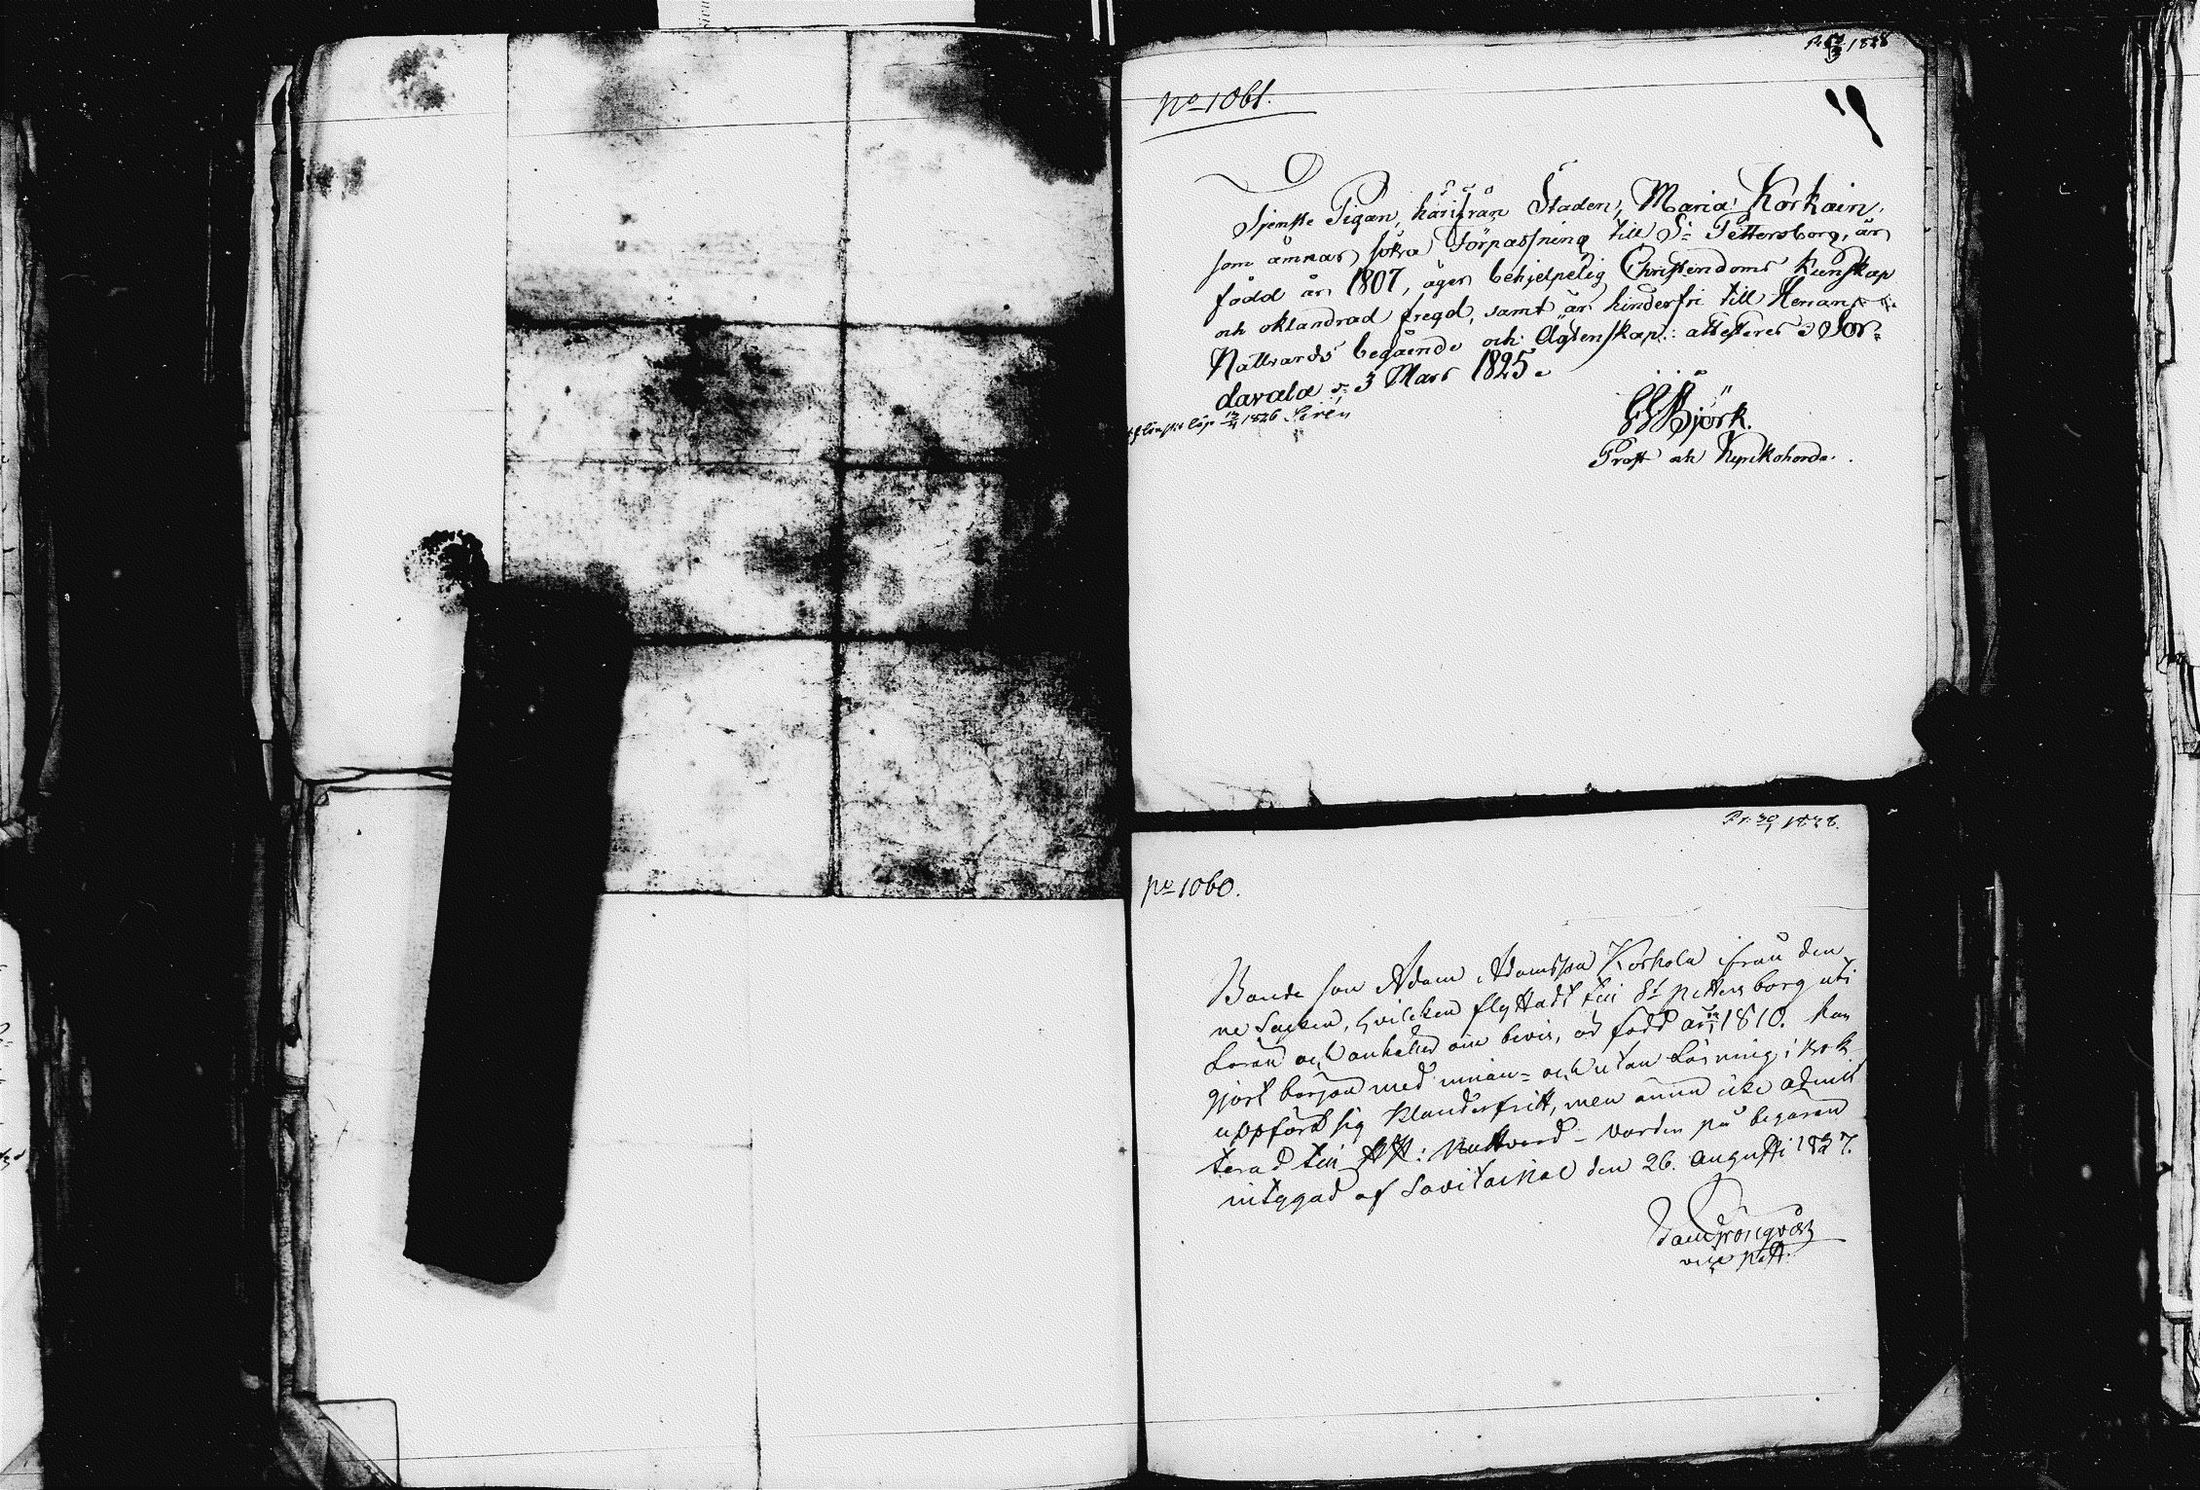 Pr. 1828
No 1061.
Tjenste Pigan, härifrån Staden, Maria Korkain,
som ämnar söka Förpassning till St Pettersborg, är
född år 1807, äger behjelpelig Christendoms Kunskap
och oklandrad fregd, samt är hinderfri till Herrans
Nattvards begående och Ägtenskap: attesteres Sor-
davala d. 3 Mars 1825.
1826 Sirén
Björk.
Prost och Kyrkoherde.
Pr. 30/1 1828.
No 1060.
Bonde son Adam Adamsson Korhola ifrån den
ne Socken, hvilcken flyttadt till St Pettersborg uti
och anhåller om bevis, är född år 1810. har
gjort början med innan- och utan Läsning i bok
uppfört sig Klanderfritt, men ännu icke admit
terad till HH: Nattvard - varder på begäran
intygad af Savitaipal den 26. Augusti 1827.
vice Past.